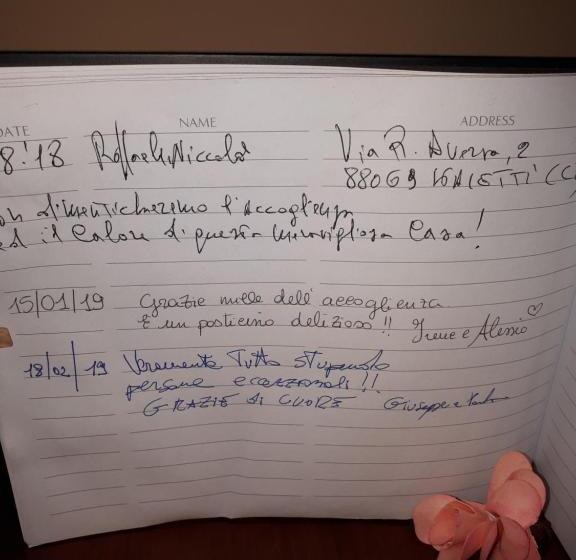 DATE NAME ADDRESS
8.'18 Raffaele Niccolò Via R. Aversa, 2
88069 (C
on dimenticheremo l'accoglienza
ed il calore di questa meravigliosa casa!
15/01/19 Grazie mille delé accoglienza
È un posticino delizioso !! Irene e Alessio
18/02/19 Veramente Tutto stupendo
persone eccezzionali !!
GRAZIE di CUORE Giuseppe e